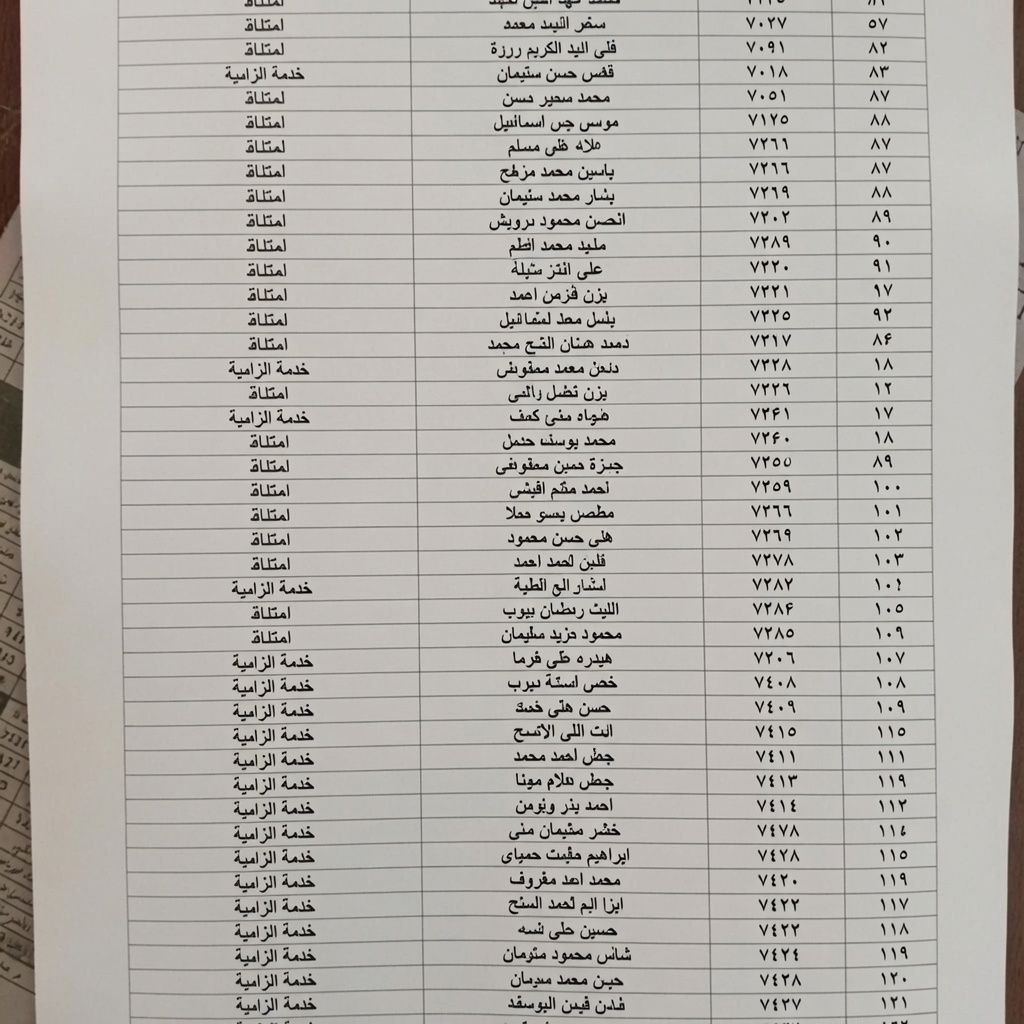 ٥٧ ٧٠٢٧ سفر اليمد معمد امتلاق
٨٢ ٧٠٩١ فلي اليد الكريم ررزة لمتلاق
٨٣ ٧٠١٨ قفس حسن ستيمان خدمة الزامية
٨٧ ٧٠٥١ محمد سحير دسن لمتلاق
٨٨ ٧١٢٥ موسى جس اسمانيل لمتلاق
٨٧ ٧٢٦٦ ملاه فلي مسلم لمتلاق
٨٧ ٧٢٦٦ ياسين محمد مزلهج امتلاق
٨٨ ٧٢٦٩ بشار محمد ستيمان امتلاق
٨٩ ٧٢٠٢ انحسن محمود درويش امتلاق
٩٠ ٧٢٨٩ مليد محمد امتلاق
٩١ ٧٢٢٠ على انتز ستيلة امتلاق
٩٧ ٧٢٢١ يزن فزمن احمد امتلاق
٩٢ ٧٢٢٥ يلسل معد لسمانيل امتلاق
٨۶ ٧٢١٧ دمعد هنان الفتح محمد امتلاق
١٨ ٧٢٢٨ معمد خدمة الزامية
١٢ ٧٢٢٦ يزن تفضل امتلاق
١٧ ٧٢۶١ خدمة الزامية
١٨ ٧٢۶٠ محمد يوسف حتمل امتلاق
٨٩ ٧٢٥٥ جيزة حمين امتلاق
١٠٠ ٧٢٥٩ احمد ملتم اقيشى امتلاق
١٠١ ٧٢٦٦ مطصس يسو معلا امتلاق
١٠٢ ٧٢٦٩ هلى حسن محمود امتلاق
١٠٣ ٧٢٧٨ قلبن لحمد احمد امتلاق
١٠٤ ٧٢٨٢ استار الع الطية خدمة الزامية
١٠٥ ٧٢٨۶ الليث رمضان بيوب امتلاق
١٠٩ ٧٢٨٥ محمود مزيد سليمان امتلاق
١٠٧ ٧٢٠٦ هيدره على فرما خدمة الزامية
١٠٨ ٧٤٠٨ خص اسلة ديرب خدمة الزامية
١٠٩ ٧٤٠٩ حسن هلى خدمة الزامية
١١٥ ٧٤١٥ الت اللى الاتسح خدمة الزامية
١١١ ٧٤١١ جض احمد محمد خدمة الزامية
١١٩ ٧٤١٣ جطى علام مونا خدمة الزامية
١١٢ ٧٤١٤ احمد بدر ويومن خدمة الزامية
١١٤ ٧٤٧٨ خشر متيمان منى خدمة الزامية
١١٥ ٧٤٢٨ ابراهيم حمياى خدمة الزامية
١١٩ ٧٤٢٠ محمد احد مفروف خدمة الزامية
١١٧ ٧٤٢٢ ابزا اليم لحمد السنح خدمة الزامية
١١٨ ٧٤٢٢ حسين حلى نسه خدمة الزامية
١١٩ ٧٤٢٤ شانس محمود متومان خدمة الزامية
١٢٠ ٧٤٢٨ حين محمد ميمان خدمة الزامية
١٢١ ٧٤٢٧ فدن فيس اليوسفد خدمة الزامية